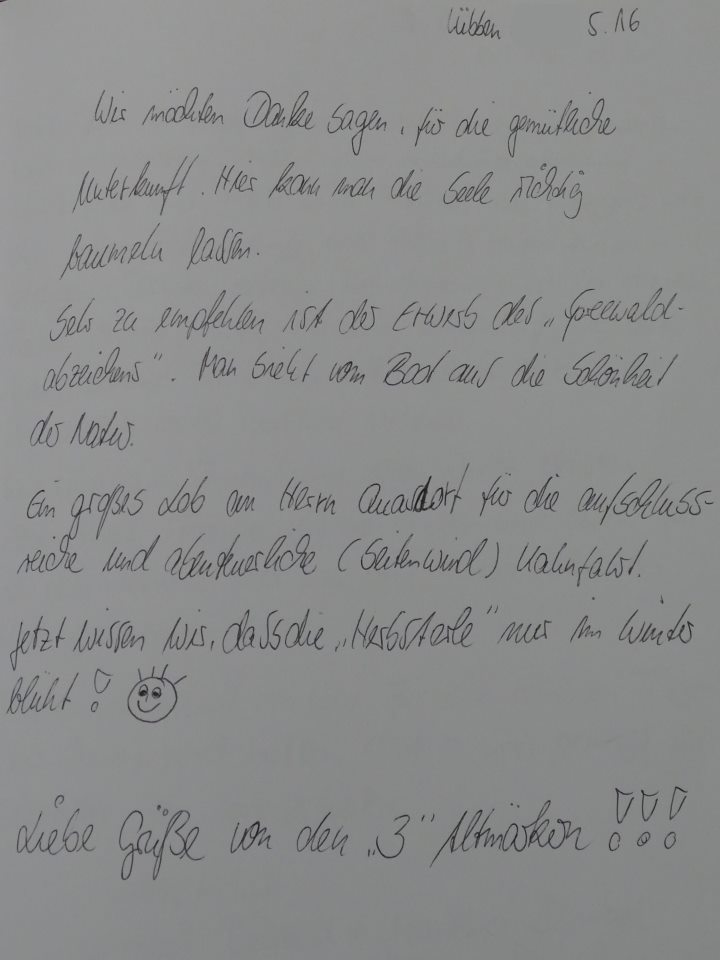 Lübben 5.16
Wir möchten Danke sagen, für die gemütliche
Unterkunft. Hier kann man die Seele richtig
baumeln lassen.
Sehr zu empfehlen ist der Erwerb des „Spreewald-
abzeichens". Man sieht vom Boot aus die Schönheit
der Natur.
Ein großes Lob an Herrn für die aufschluss-
reiche und abenteuerliche (Seitenwind) Kahnfahrt.
Jetzt wissen wir, dass die „Herbsterle" nur im Winter
blüht!
Liebe Grüße von den „3" Altmärkern!!!